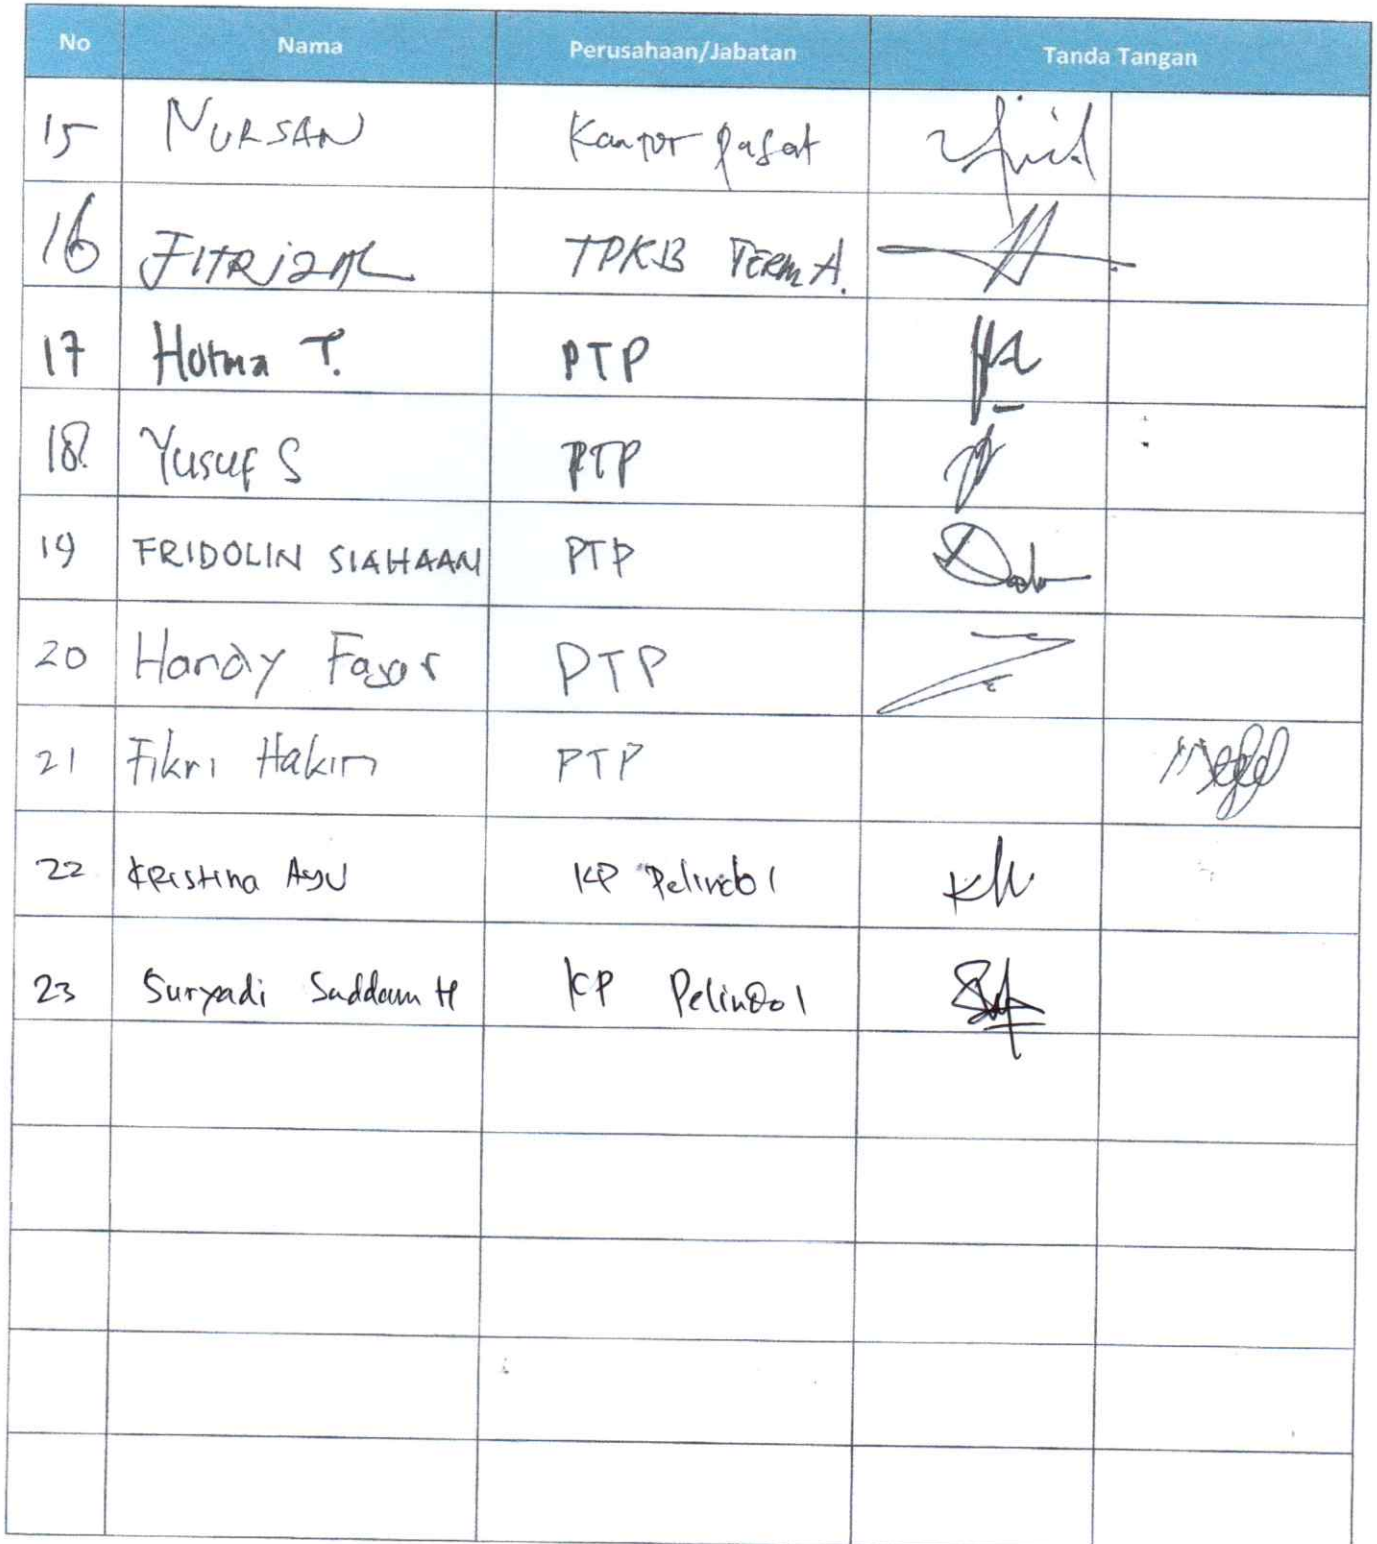 No Nama Perusahaan/Jabatan Tanda Tangan
15 NURSAN Kantor pusat
16 FITRIZAL TPKB TERM A.
17 Hotma T. PTP
18. Yusuf S PTP
19 FRIDOLIN SIAHAAN PTP
20 Handy Fajar PTP
21 Fikri Hakim PTP
22 Kristina Ayu KP Pelindo 1
23 Suryadi Saddam H KP Pelindo 1